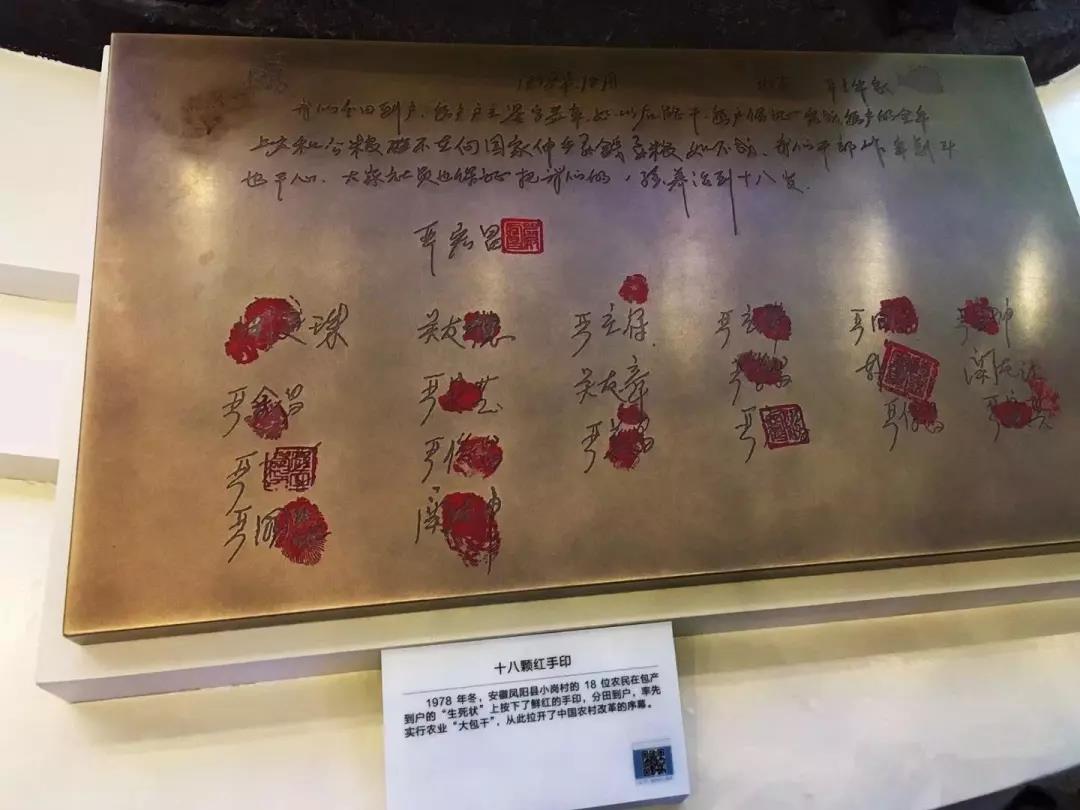 1978年12月 严立华家
我们分田到户,每户户主签字盖章,如以后能干,每户保证完成每户的全年
上交和公粮,不在向国家伸手要钱要粮,如不成,我们干部作牢刹头
也干心,大家社员也保证把我们的小孩养活到十八岁.
严宏昌
关友 严立符 严 严 严 坤
严金昌 严 芝 关友章 严 昌 关友江
严 严俊 严 昌 严 严付昌 严
严国 关 申
十八颗红手印
1978 年冬,安徽凤阳县小岗村的 18 位农民在包产
到户的“生死状”上按下了鲜红的手印,分田到户,率先
实行农业“大包干”,从此拉开了中国农村改革的序幕。